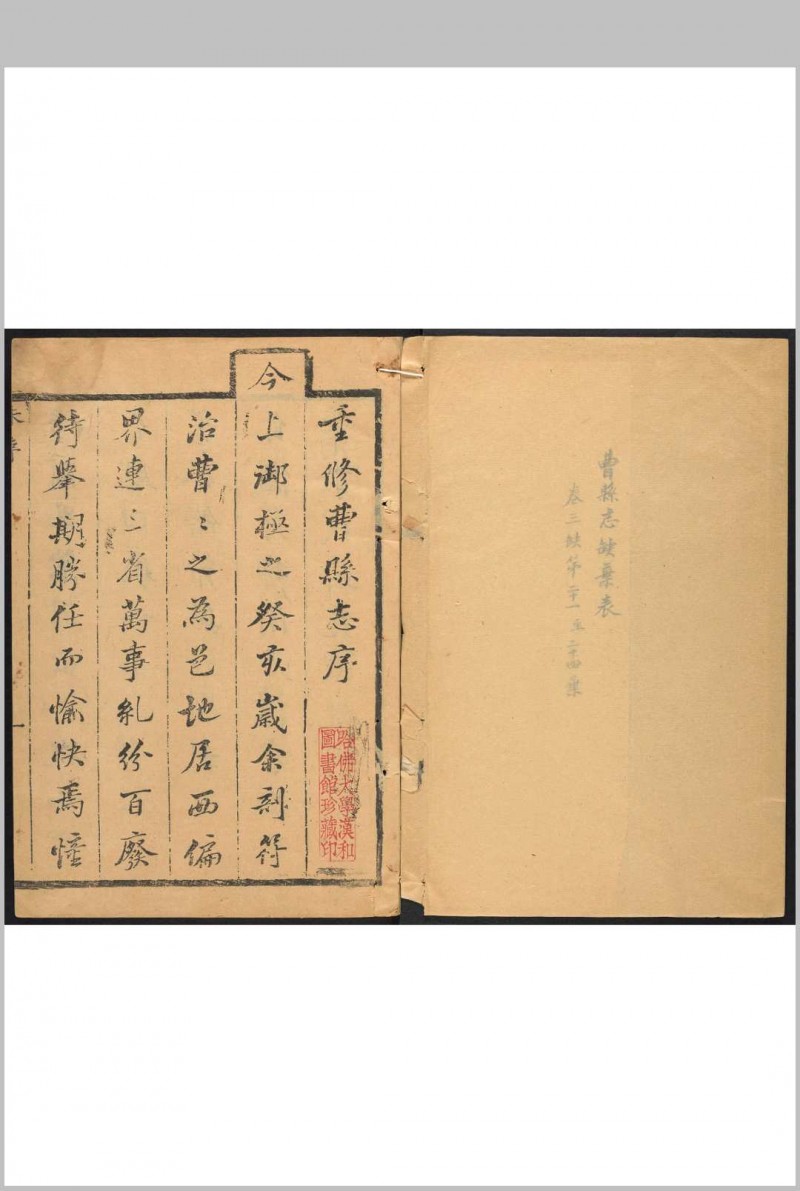 曹縣志缺葉表
卷三缺第二十一至二十四葉
重修曹縣志序
今
上御極之癸亥歲余剖符
治曹〻之為邑地居西偏
界連三省萬事糺紛百廢
待舉期勝任而愉快焉憧
哈佛大學漢和
圖書館珍藏印